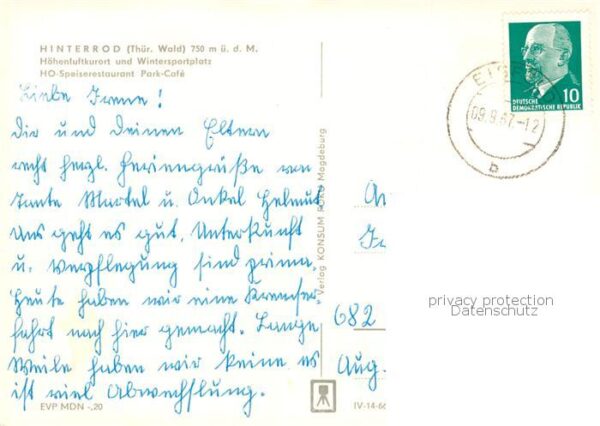 HINTERROD (Thür. Wald) 750 m ü. d. M.
Höhenluftkurort und Wintersportplatz
HO-Speiserestaurant Park-Café
Liebe Irene!
Dir und deinen Eltern
recht herzl. Feriengrüße von
Tante Martel u. Onkel Helmut
Uns geht es gut, Unterkunft
u. Verpflegung sind prima.
Heute haben wir eine Kremser-
fahrt nach hier gemacht. Lange
Weile haben wir keine es
ist viel Abwechslung.
EVP MDN -,20
Verlag KONSUM Magdeburg
IV-14-66
10
DEUTSCHE
DEMOKRATISCHE REPUBLIK
09.8.67.-12
b
An
682
Aug.
privacy protection
Datenschutz